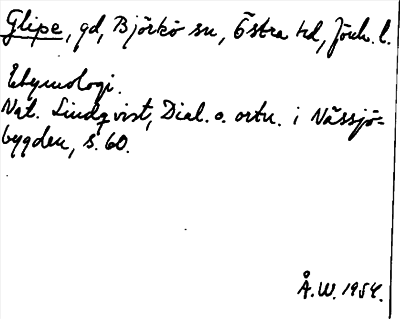 Glipe, gd, Björkö sn, Östra hd, Jönk. l.
Etymologi.
Nat. Lindqvist, Dial. o. ortn. i Nässjö-
bygden, s. 60.
Å.W. 1954.